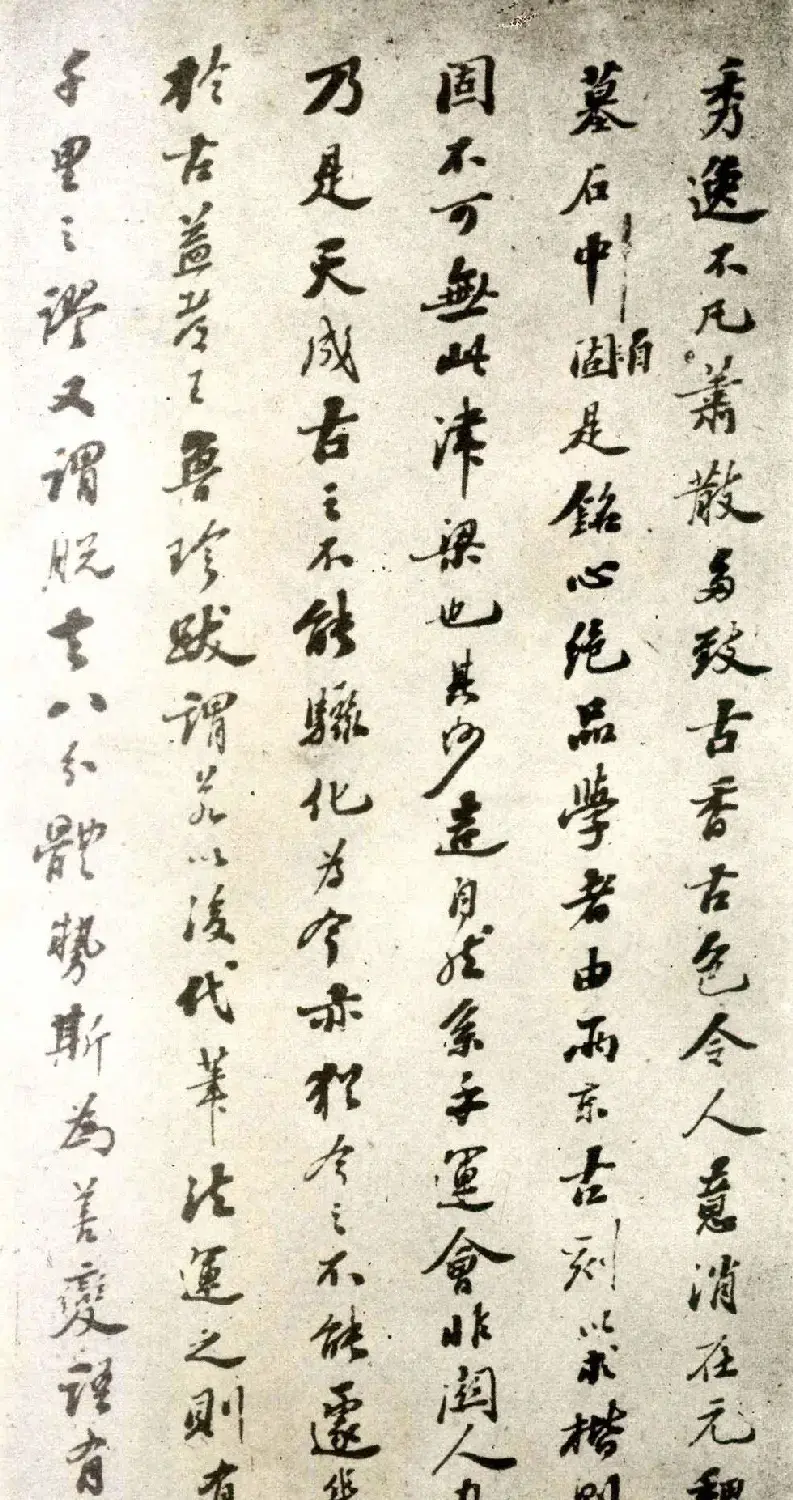 秀逸不凡蕭散多致古香古色令人意消在元魏
墓石中固是銘心絕品學者由兩京古刻以求楷則
固不可無此津梁也其妙造自然系乎運會非關人力
乃是天成古之不能驟化為今亦猶今之不能遽
於古益昔王魯珍跋謂若以後代筆法運之則有
千里之謬又謂脫去八分體勢斯為善變語有